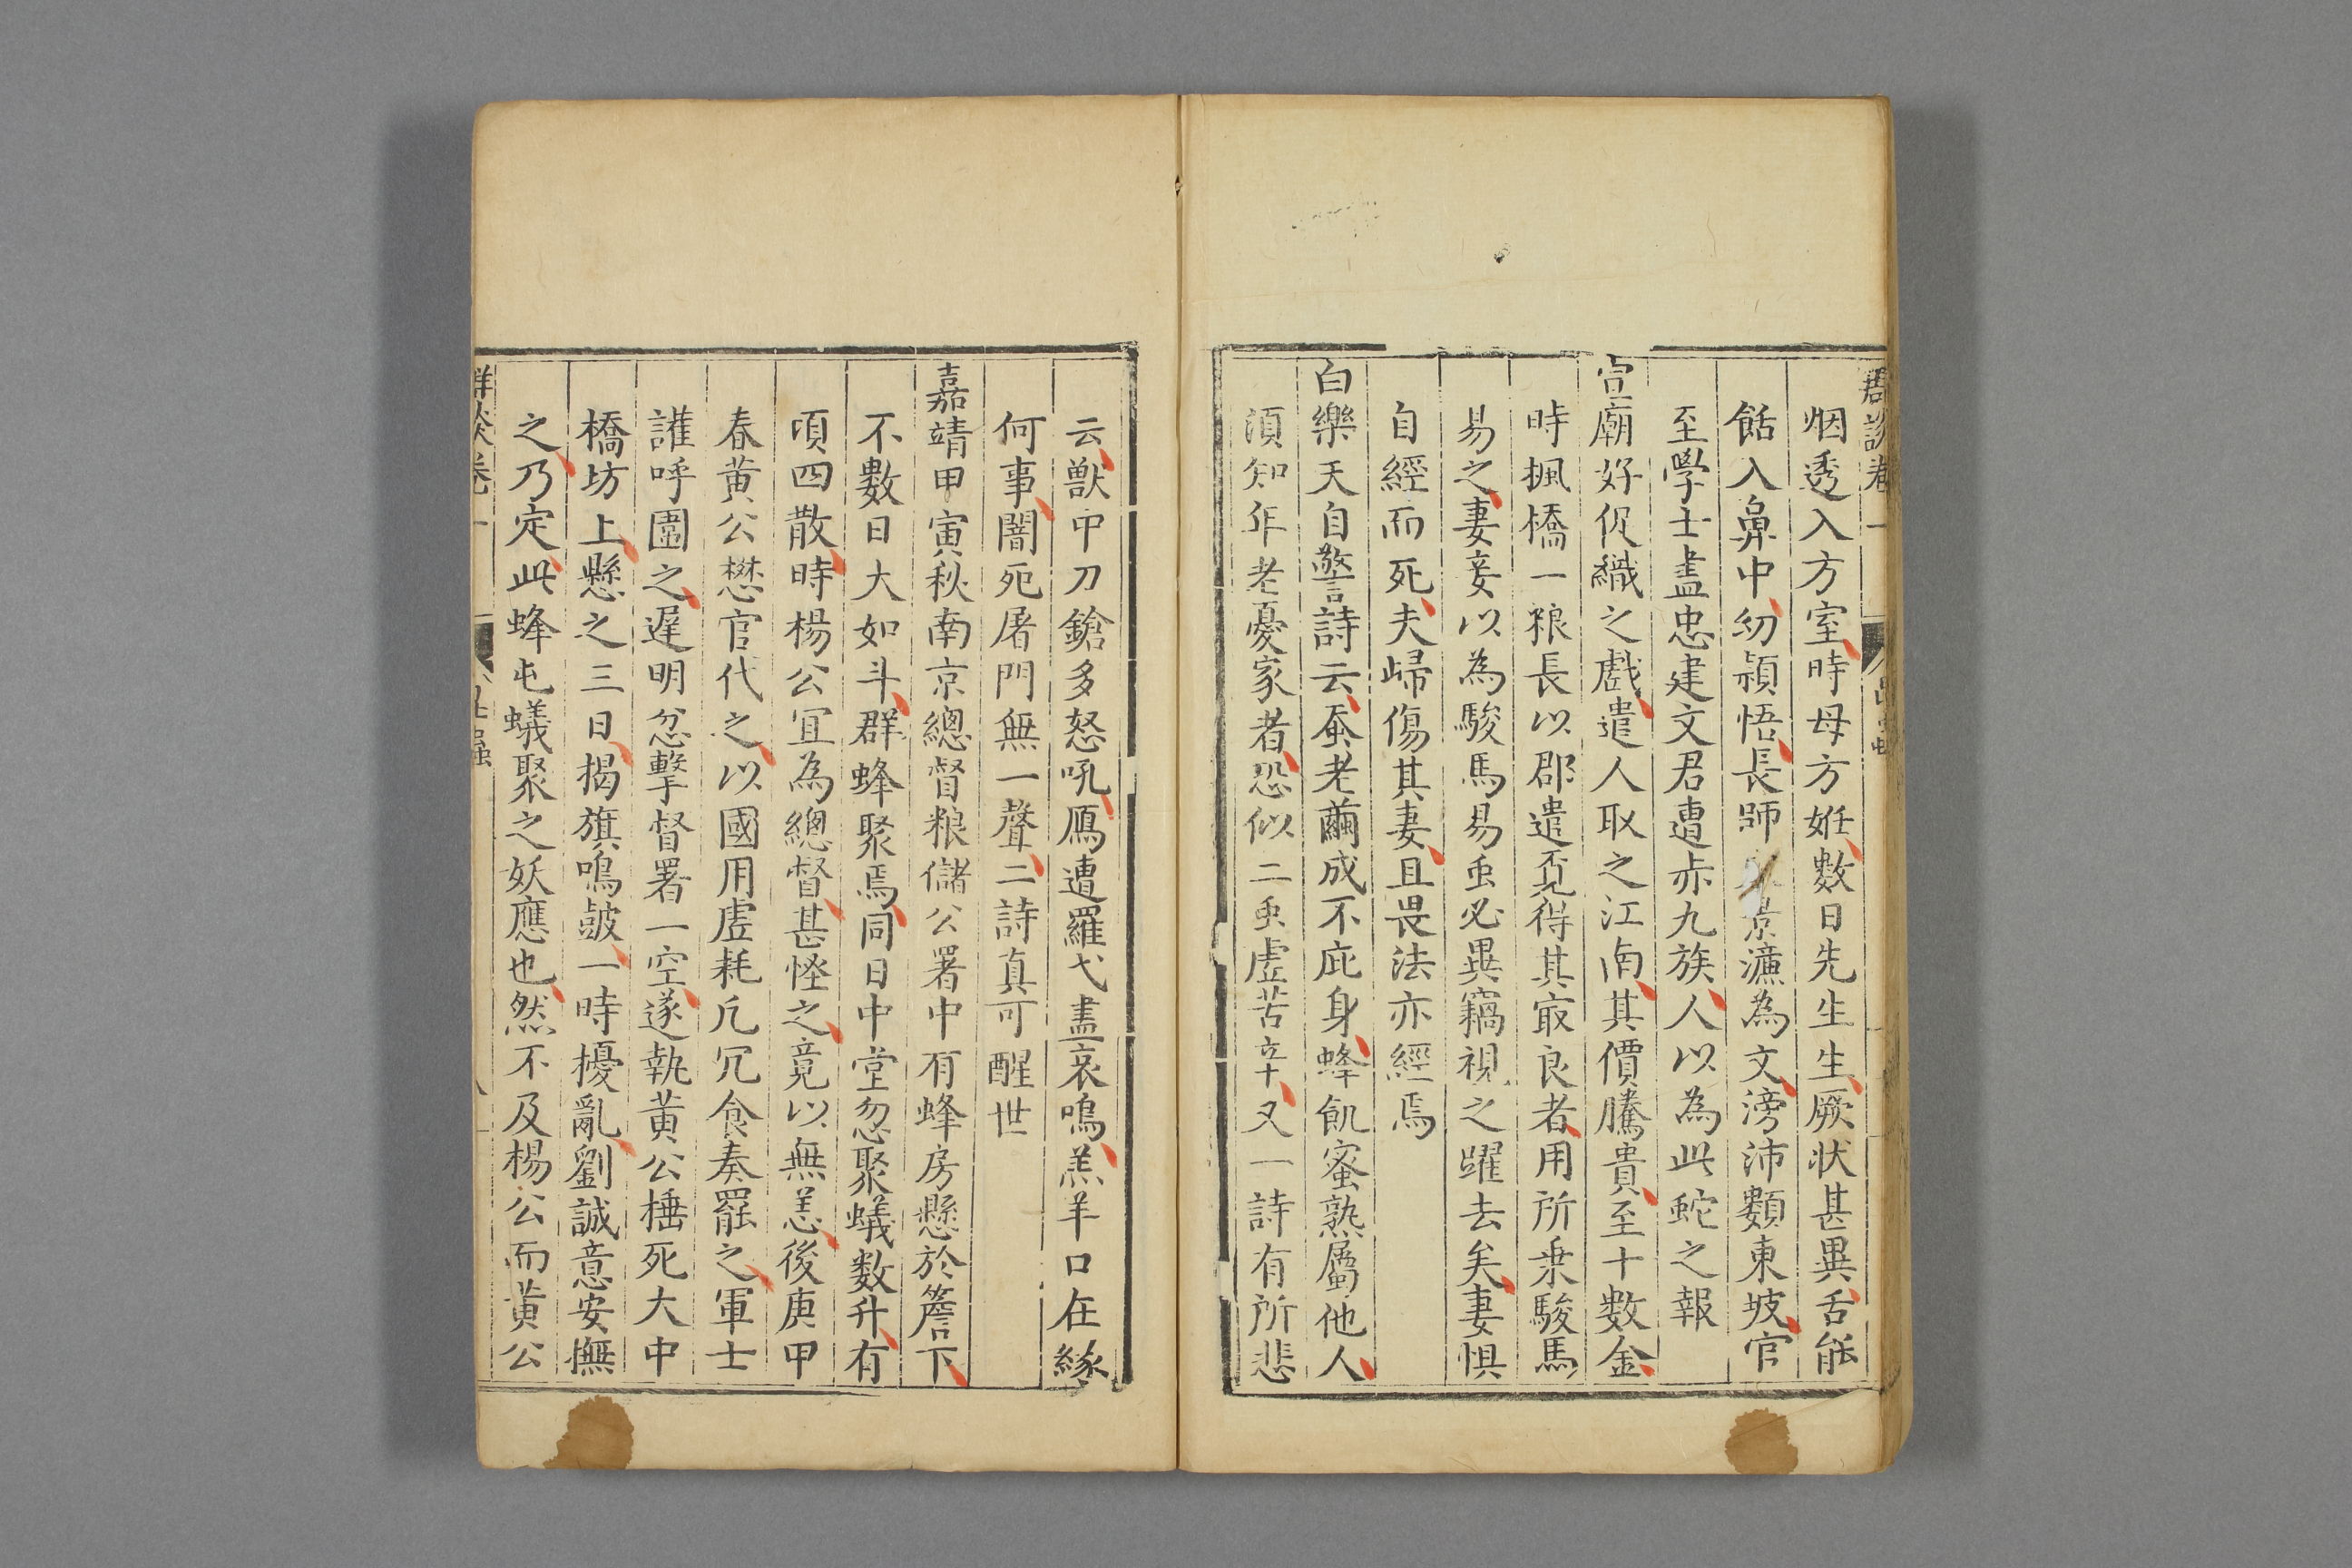 群談卷一
烟透入方室時母方姙數日先生生厥狀甚異舌能
餂入鼻中幼穎悟長師景濂為文滂沛類東坡官
至學士盡忠建文君遭赤九族人以為此蛇之報
宣廟好促織之戲遣人取之江南其價騰貴至十數金
時楓橋一粮長以郡遣覔得其㝡良者用所乗駿馬
易之妻妾以為駿馬易虫必異竊視之躍去矣妻惧
自經而死夫歸傷其妻且畏法亦經焉
白樂天自警詩云蚕老繭成不庇身蜂飢蜜熟屬他人
須知年老憂家者恐似二虫虛苦辛又一詩有所悲
云獸中刀鎗多怒吼鴈遭羅弋盡哀鳴羔羊口在緣
何事闇死屠門無一聲二詩真可醒世
嘉靖甲寅秋南京總督粮儲公署中有蜂房懸於簷下
不數日大如斗群蜂聚焉同日中堂忽聚蟻数升有
頃四散時楊公宜為總督甚怪之竟以無恙後庚甲
春黄公懋官代之以國用虛耗凡冗食奏罷之軍士
讙呼圍之遲明忿擊督署一空遂執黄公棰死大中
橋坊上懸之三日揭旗鳴皷一時擾亂劉誠意安撫
之乃定此蜂屯蟻聚之妖應也然不及楊公而黄公
群談卷一